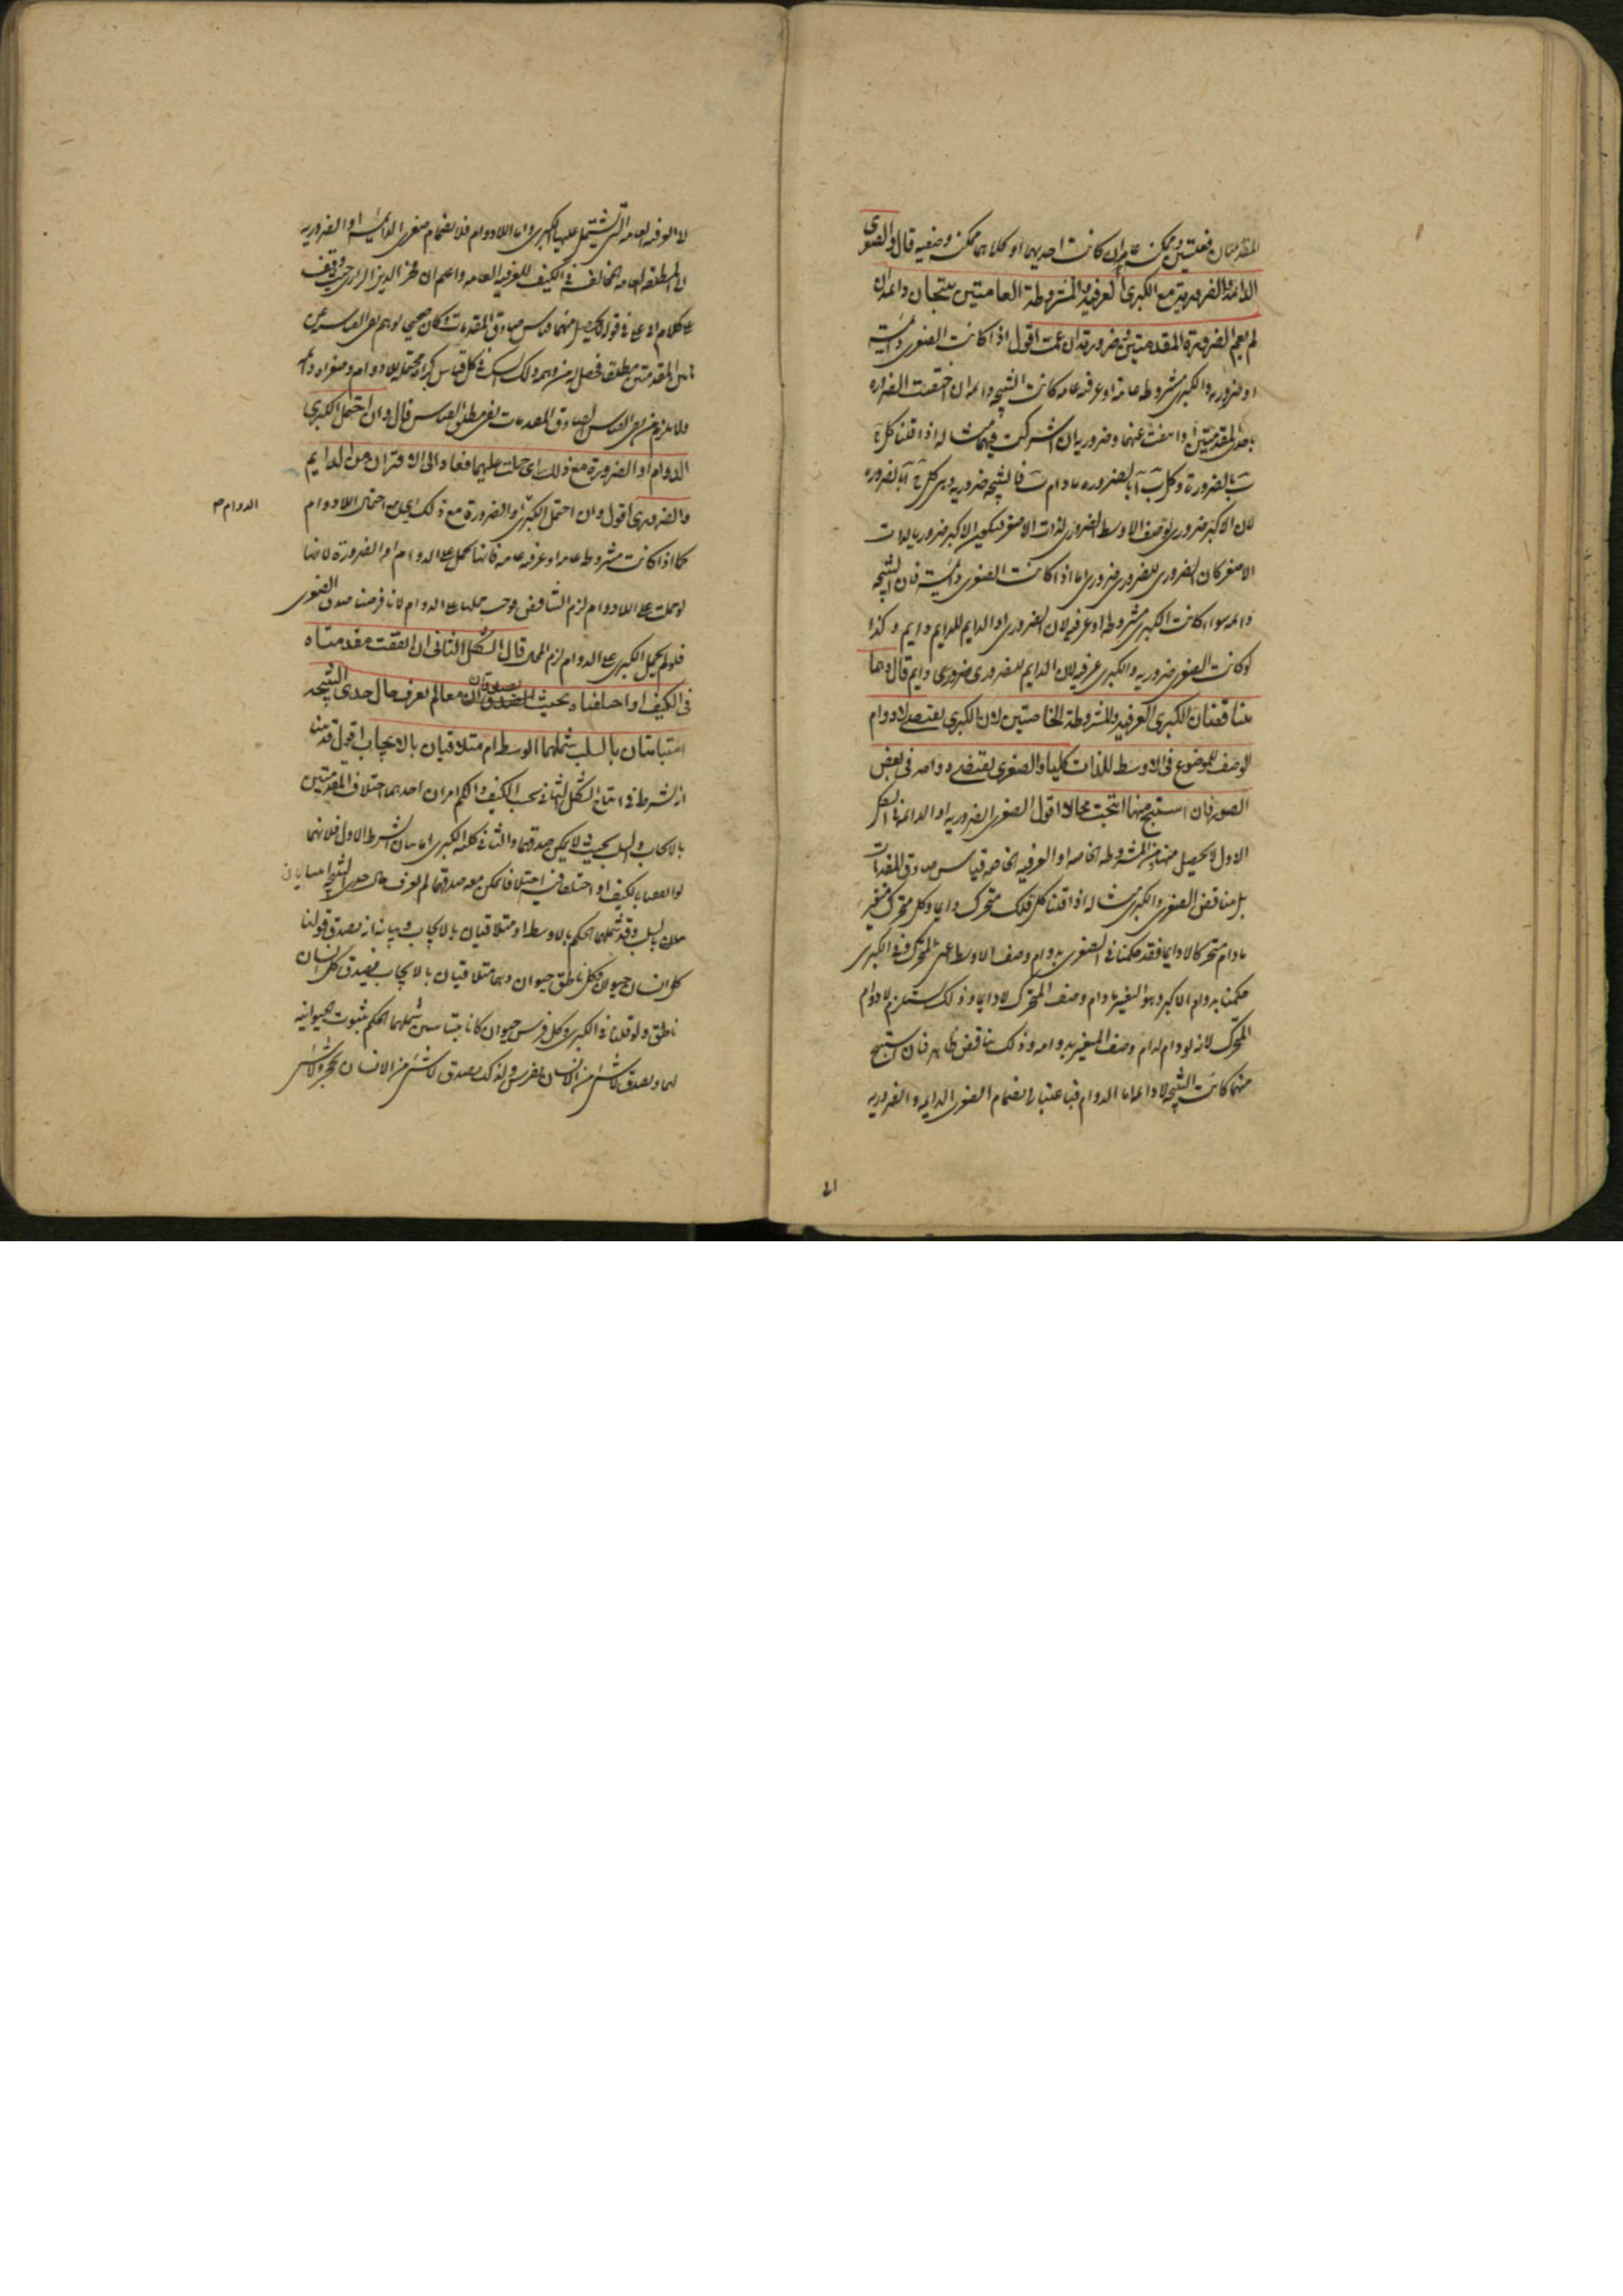 المقدمتان فعليتين وممكن عام ان كانت احديهما او كلاهما ممكنة وضعيه قال والصغرى
الدائمة والضرورية مع الكبرى العرفية والمشروطة العامتين ينتجان دائمة ان
لم يعم الضرورة المقدمتين وضرورية ان عمت اقول اذا كانت الصغرى دائمة
او ضروريه والكبرى مشروطه عامه او عرفيه عامه كانت النتيجه دائمه ان اختصت الضروره
باحدى المقدمتين او انتفت عنهما وضروريه ان اشتركت فيهما مثاله اذا قلنا كل ج
ب بالضرورة وكل ب آ بالضروره مادام ب فالنتيجه ضروريه وهى كل ج آ بالضروره
لان الاكبر ضرورى لوصف الاوسط الضرورى لذات الاصغر فيكون الاكبر ضروريا لذات
الاصغر لان الضرورى للضرورى ضرورى اما اذا كانت الصغرى دائمة فان النتيجه
دائمه سواء كانت الكبرى مشروطه او عرفيه لان الضرورى او الدايم للدايم دايم وكذا
لو كانت الصغرى ضروريه والكبرى عرفيه لان الدايم للضرورى ضرورى دايم قال وهما
يناقضان الكبرى العرفية والمشروطة الخاصتين لان الكبرى يقتضى لا دوام
الوصف للموضوع فى الاوسط للذات كليا والصغرى يقتضى دوامه فى بعض
الصور فان استنتج منهما انتجت محالا اقول الصغرى الضروريه او الدائمه فى الشكل
الاول لا يحصل منها ومن المشروطه الخاصه او العرفيه الخاصه قياس صادق المقدمات
بل يناقض الصغرى والكبرى مثاله اذا قلنا كل فلك متحرك دايما وكل متحرك متغير
مادام متحركا لا دايما فقد حكمنا فى الصغرى بدوام وصف الاوسط اعنى المتحرك وفى الكبرى
حكمنا بدوام الاكبر وهو التغير مادام وصف المتحرك لا دايما وذلك يستلزم لا دوام
المتحرك لانه لو دام لدام وصف المتغير بدوامه وذلك يناقض فان استنتج
منهما كانت النتيجه لا دائمه اما الدوام فباعتبار انضمام الصغرى الدايمه والضروريه
الى
الى العرفيه العامه التى يشتمل عليها الكبرى واما اللادوام فلانضمام صغرى الدائمة او الضروريه
الى المطلقه العامه المخالفه فى الكيف للعرفيه العامه واعلم ان فخر الدين الرازى حيث وقف
على كلام فى قوله لا يحصل منهما قياس صادق المقدمات وكان
المقدمتين مطلقا وليس كذلك فى كل قياس كبراه محتمله للادوام وصغراه دائمه
ولا يلزم من نفى القياس الصادق المقدمات نفى مطلق القياس قال وان احتمل الكبرى
الدوام او الضرورة مع ذلك اى حملت عليهما فعاد الى الاقتران من الدايم
والضرورى اقول وان احتمل الكبرى او الضرورة مع ذلك اى مع احتمال اللادوام
الدوام صح
كما اذا كانت مشروطه عامه او عرفيه عامه فانها تحمل على الدوام او الضرورة لانها
لو حملت على اللادوام لزم التناقض فوجب حملها على الدوام لانا فرضنا صدق الصغرى
فلو لم يحمل الكبرى على الدوام لزم المحال قال الشكل الثانى ان اتفقت مقدمتاه
فى الكيف او اختلفتا بحيث يصدقان معا لم يعرف حال حدى النتيجه
امتباينتان بالسلب شملهما الوسط ام متلاقيان بالايجاب اقول قد بينا
ان الشرط فى انتاج الشكل الثانى بحسب الكيف والكم امران احدهما اختلاف المقدمتين
بالايجاب والسلب بحيث لا يمكن صدقهما والثانى كلية الكبرى اما بيان الشرط الاول فلانهما
لو اتفقتا بالكيف او اختلفتا فيه اختلافا يمكن معه صدقهما لم يعرف حال حدى النتيجه
بالسلب وقد شملهما الحكم بالاوسط او متلاقيان بالايجاب وبيانه انه يصدق قولنا
كل انسان حيوان وكل ناطق حيوان وهما متلاقيان بالايجاب فيصدق كل انسان
ناطق ولو قلنا فى الكبرى وكل فرس حيوان كانا متباينين شملهما الحكم بثبوت الحيوانيه
لهما ويصدق لا شئ من الانسان بفرس ولذلك يصدق لا شئ من الانسان بحجر ولا شئ